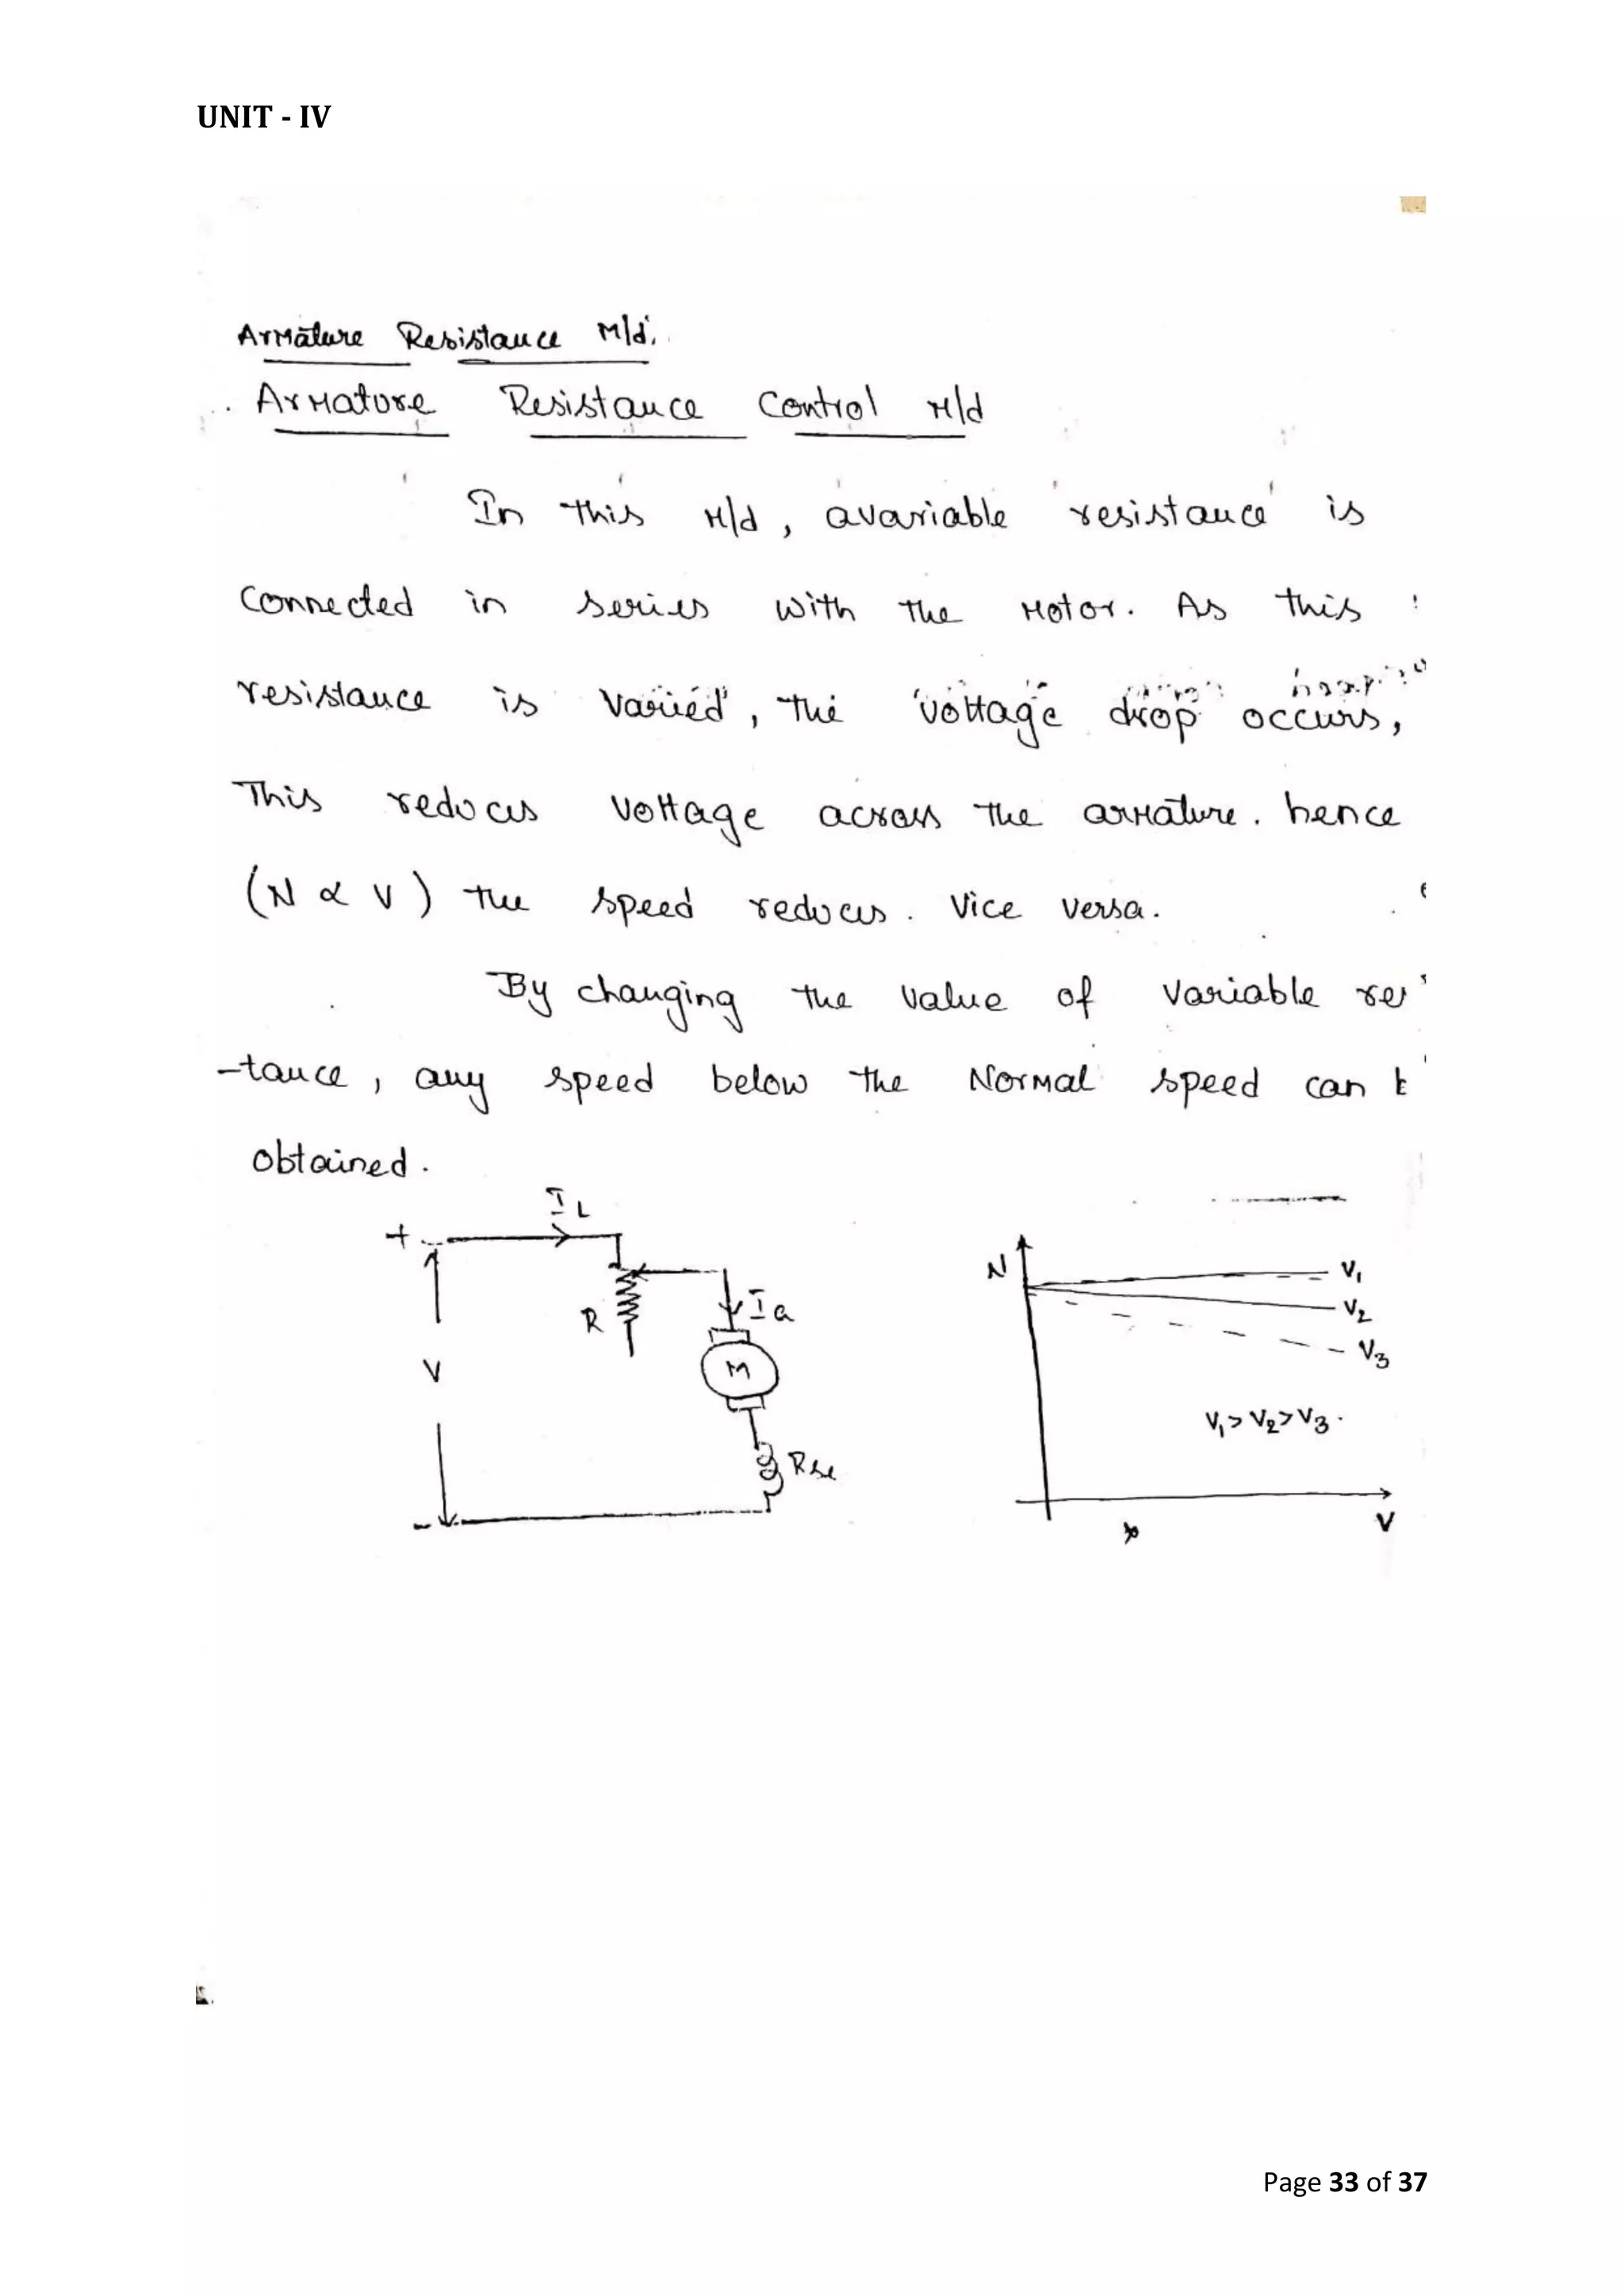 UNIT - IV
Armature Resistance M/d.
Armature Resistance Control M/d
In this M/d, avariable resistance is
Connected in series with the Motor. As this
resistance is varied, the voltage drop occurs,
This reduces voltage across the armature. hence
(N ∝ V) the speed reduces. Vice versa.
By changing the value of variable res
-tance, any speed below the Normal speed can
obtained.
+ I L
R
I a
V
M
R se
-
N
V1
V2
V3
V1 > V2 > V3.
V
Page 33 of 37